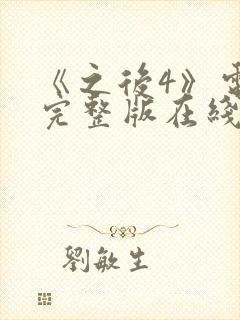 《之後4》電
完整版在綫
劉敏生